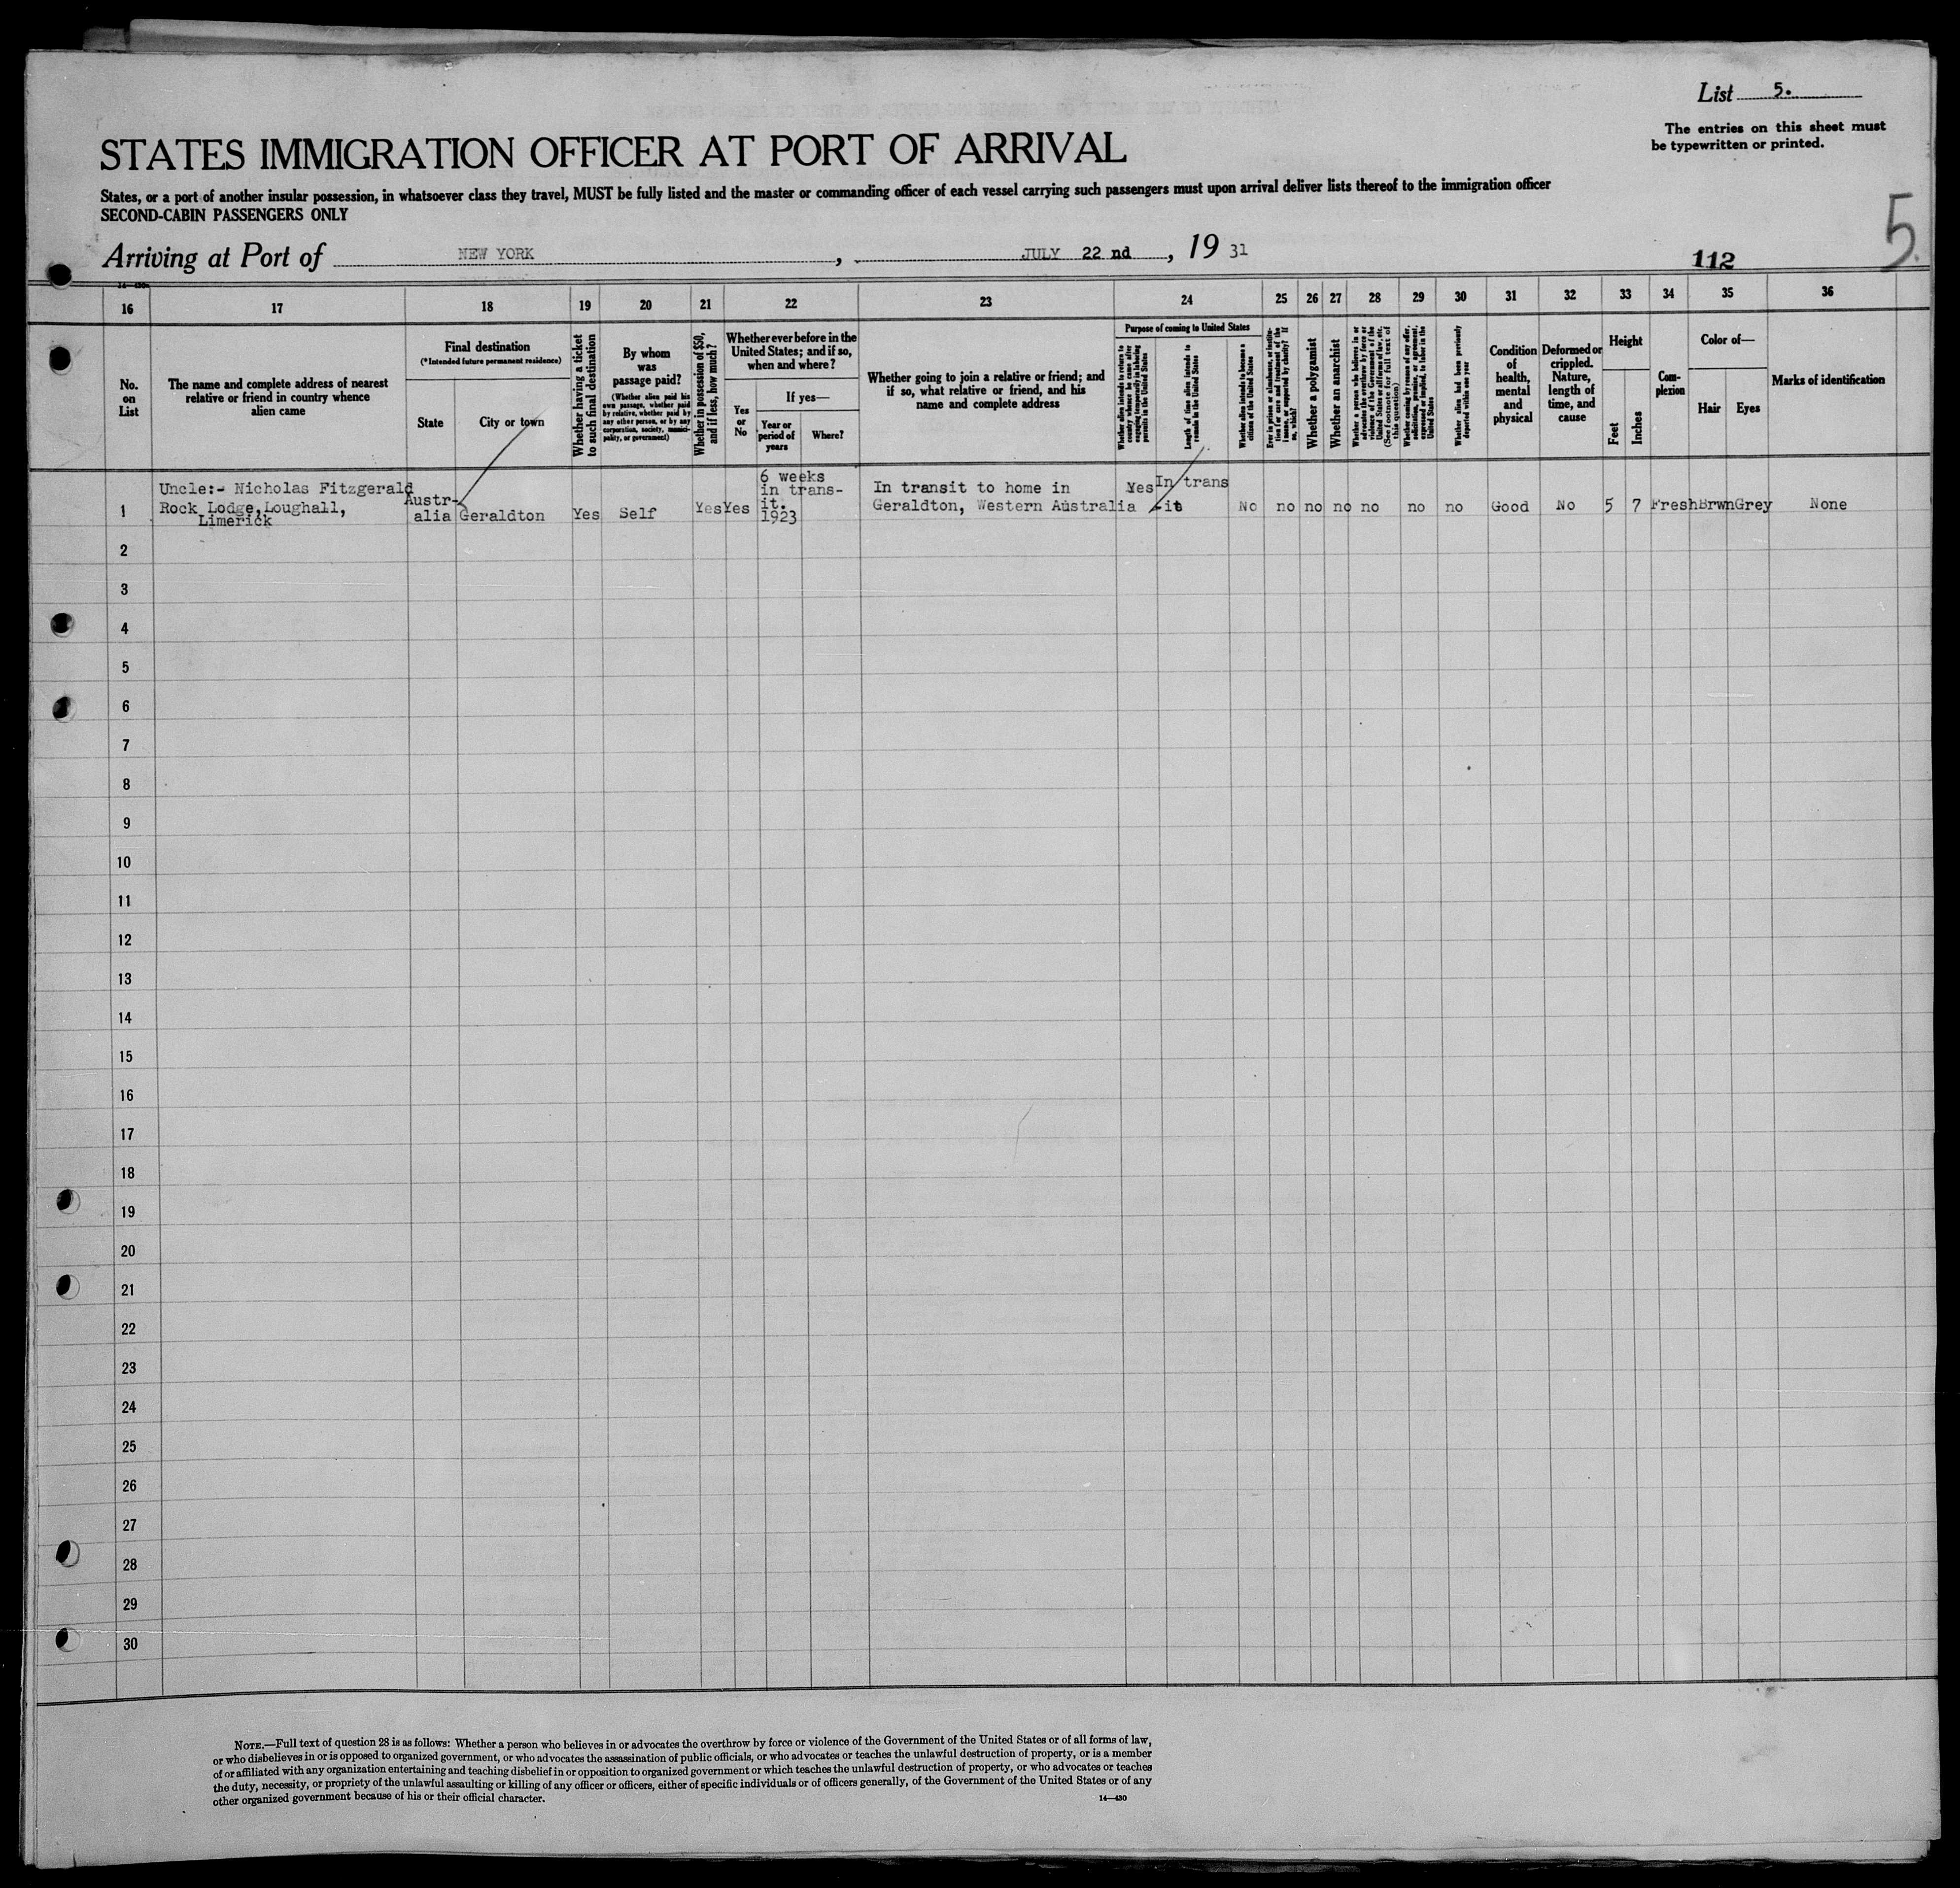 List 5.
The entries on this sheet must
be typewritten or printed.
STATES IMMIGRATION OFFICER AT PORT OF ARRIVAL
States, or a port of another insular possession, in whatsoever class they travel, MUST be fully listed and the master or commanding officer of each vessel carrying such passengers must upon arrival deliver lists thereof to the immigration officer
SECOND-CABIN PASSENGERS ONLY
5.
Arriving at Port of NEW YORK, JULY 22 nd, 19 31
112
16 17 18 19 20 21 22 23 24 25 26 27 28 29 30 31 32 33 34 35 36
No.
on
List
The name and complete address of nearest
relative or friend in country whence
alien came
Final destination
(*Intended future permanent residence)
State
City or town
Whether having a ticket
to such final destination
By whom
was
passage paid?
(Whether alien paid his
own passage, whether paid
by relative, whether paid by
any other person, or by any
corporation, society, munici-
pality, or government)
Whether in possession of $50,
and if less, how much?
Whether ever before in the
United States; and if so,
when and where?
Yes
or
No
If yes—
Year or
period of
years
Where?
Whether going to join a relative or friend; and
if so, what relative or friend, and his
name and complete address
Purpose of coming to United States
Whether alien intends to return to
country whence he came after
engaging temporarily in laboring
pursuits in the United States
Length of time alien intends to
remain in the United States
Whether alien intends to become a
citizen of the United States
Ever in prison or almshouse, or institu-
tion for care and treatment of the
insane, or supported by charity? If
so, which?
Whether a polygamist
Whether an anarchist
Whether a person who believes in or
advocates the overthrow by force or
violence of the Government of the
United States or all forms of law, etc.
(See footnote for full text of
this question)
Whether coming by reason of any offer,
solicitation, promise, or agreement,
expressed or implied, to labor in the
United States
Whether alien had been previously
deported within one year
Condition
of
health,
mental
and
physical
Deformed or
crippled.
Nature,
length of
time, and
cause
Height
Feet
Inches
Com-
plexion
Color of—
Hair
Eyes
Marks of identification
1
Uncle:- Nicholas Fitzgerald
Rock Lodge, Loughall,
Limerick
Austr-
alia
Geraldton
Yes
Self
Yes
Yes
6 weeks
in trans-
it.
1923
In transit to home in
Geraldton, Western Australia
Yes
In trans
-it
No
no
no
no
no
no
no
Good
No
5
7
Fresh
Brwn
Grey
None
2
3
4
5
6
7
8
9
10
11
12
13
14
15
16
17
18
19
20
21
22
23
24
25
26
27
28
29
30
NOTE.—Full text of question 28 is as follows: Whether a person who believes in or advocates the overthrow by force or violence of the Government of the United States or of all forms of law,
or who disbelieves in or is opposed to organized government, or who advocates the assassination of public officials, or who advocates or teaches the unlawful destruction of property, or is a member
of or affiliated with any organization entertaining and teaching disbelief in or opposition to organized government or which teaches the unlawful destruction of property, or who advocates or teaches
the duty, necessity, or propriety of the unlawful assaulting or killing of any officer or officers, either of specific individuals or of officers generally, of the Government of the United States or of any
other organized government because of his or their official character.
14—430